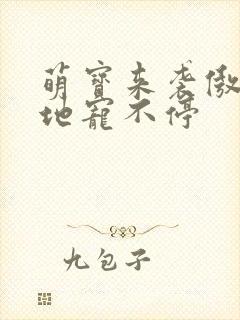 萌寶来袭傲
地寵不停
九包子